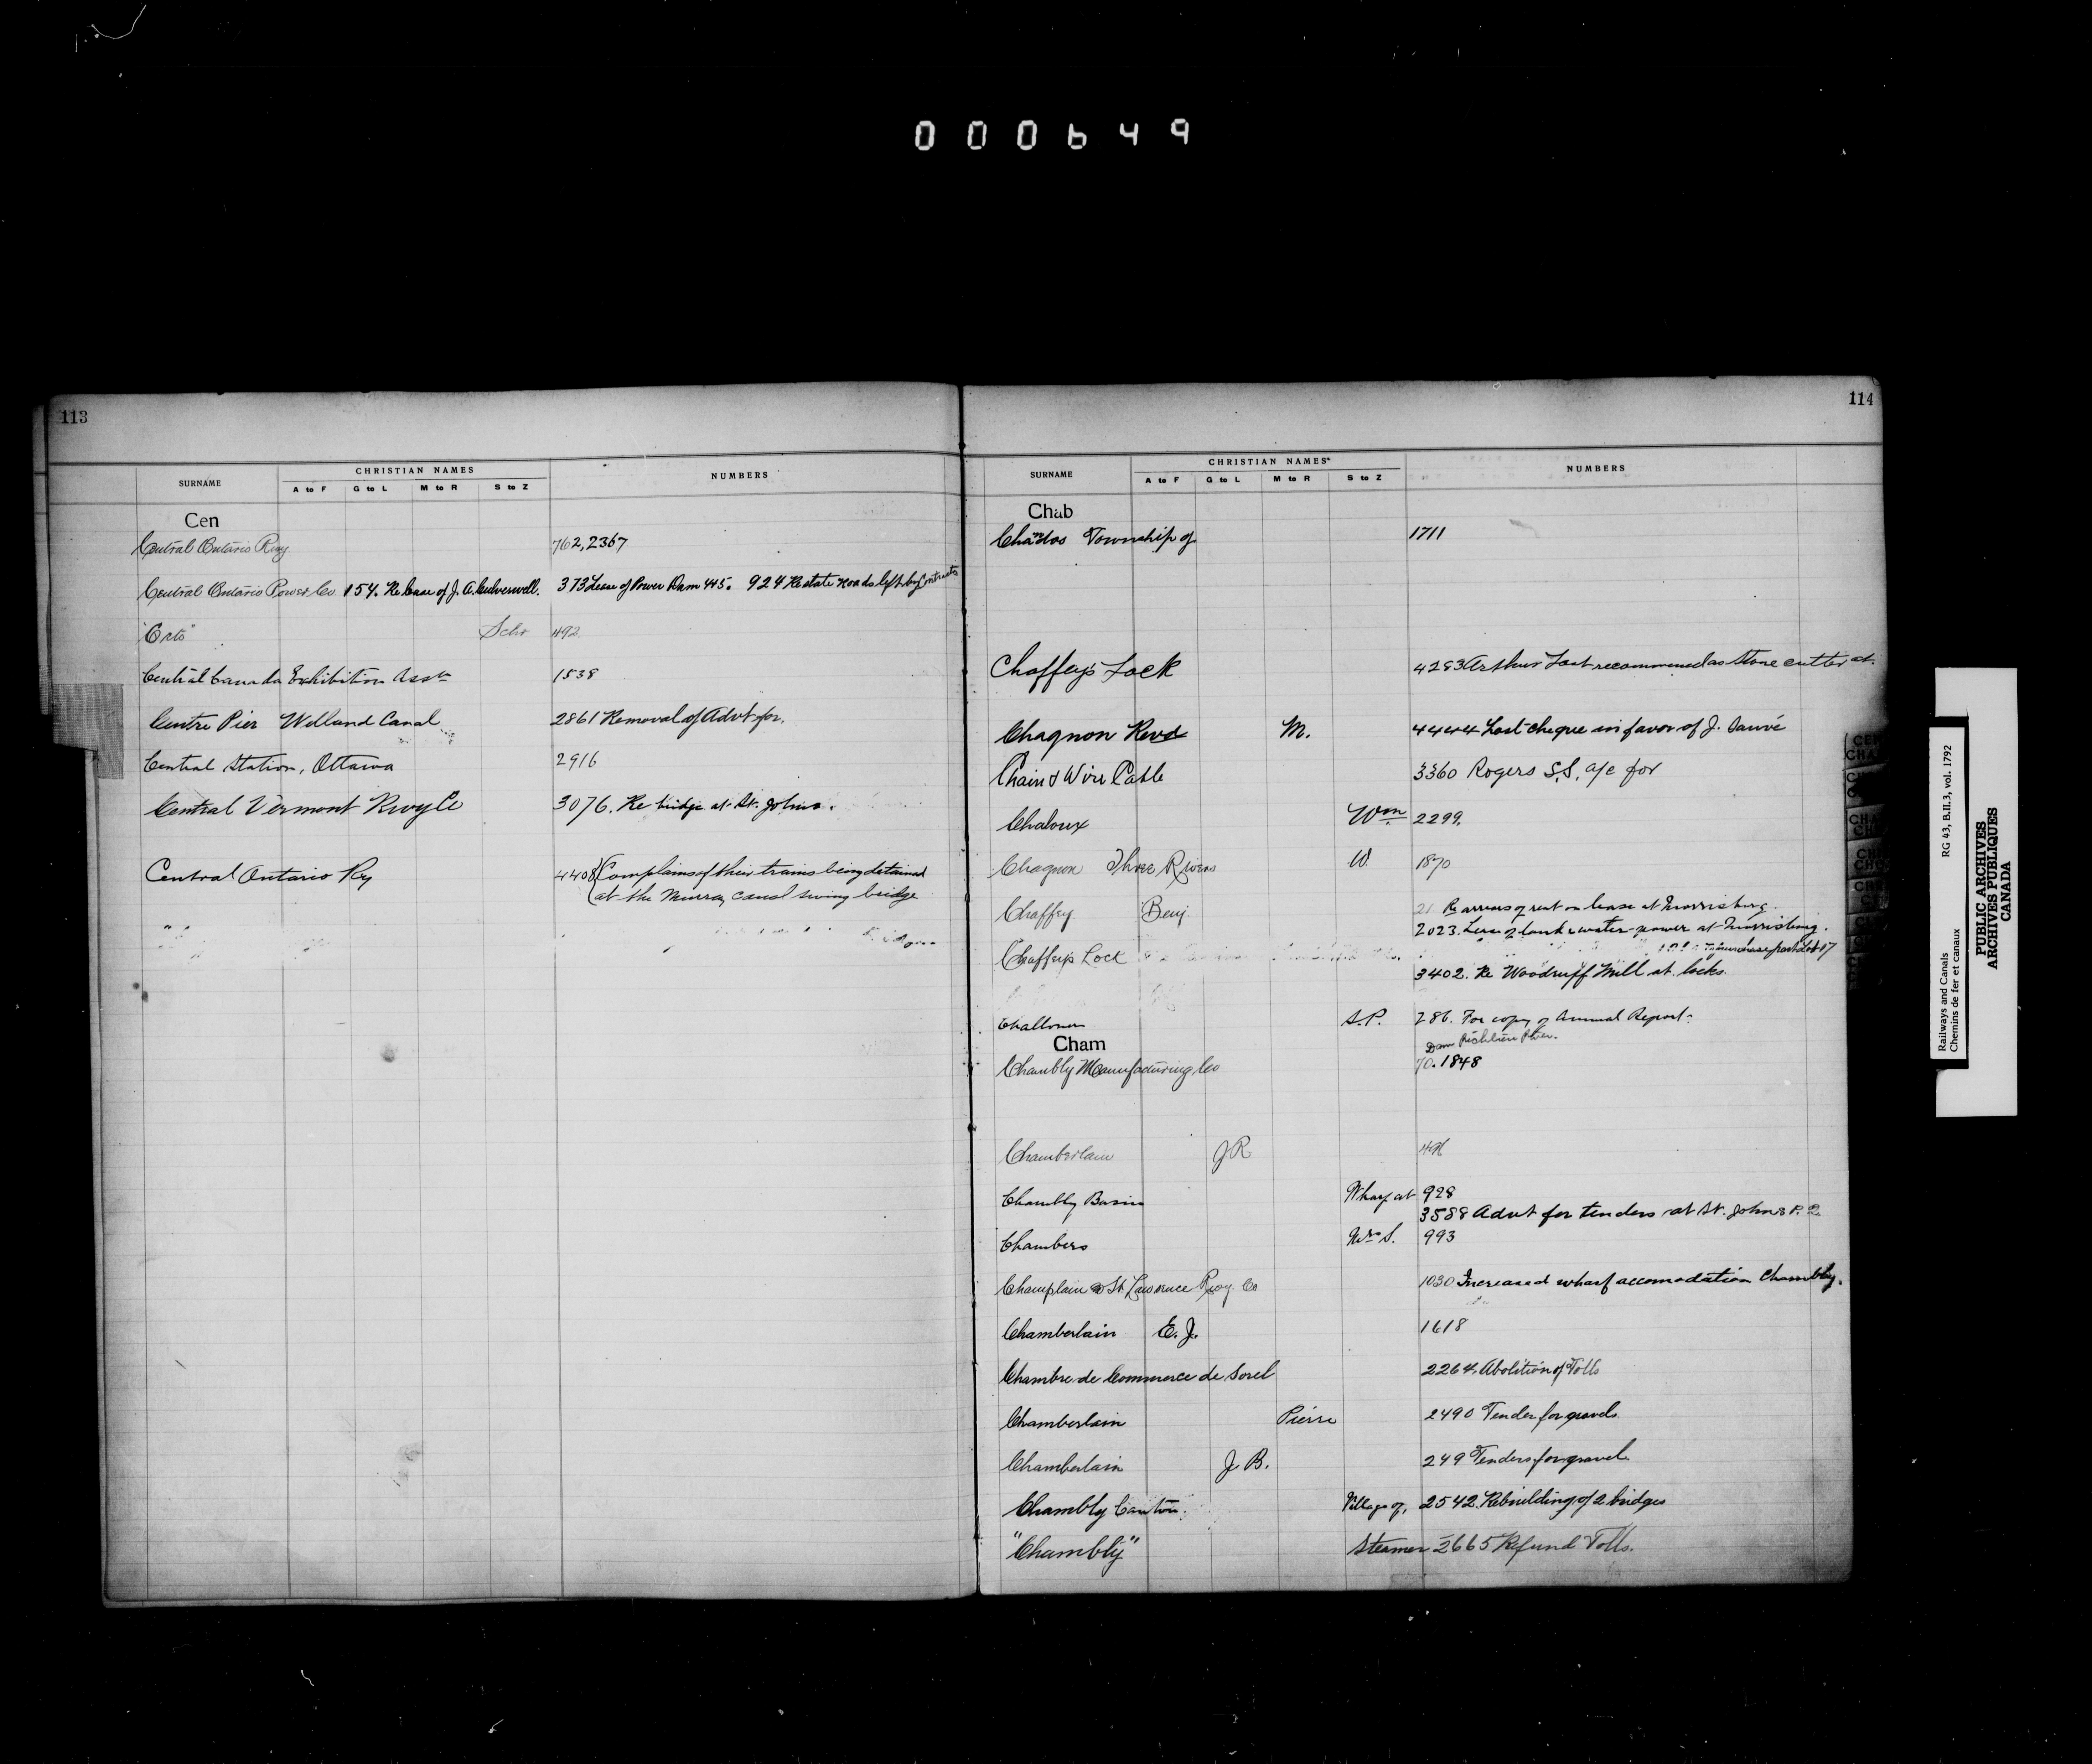 000649
113
SURNAME CHRISTIAN NAMES NUMBERS
A to F G to L M to R S to Z
Cen
Central Ontario Rwy 762, 2367
Central Ontario Power Co 154. Re lease of J. A. Culverwell. 373 Lease of Power Dam #5. 924 Re state roads left by Contractor
Schr 492
Central Canada Exhibition Assn 1538
Centre Pier Welland Canal 2861 Removal of Advt for.
Central Station, Ottawa 2916
Central Vermont Rwy Co 3076. Re bridge at St. Johns.
Central Ontario Ry 4408 Complains of their trains being detained
at the Murray canal swing bridge
114
SURNAME CHRISTIAN NAMES NUMBERS
A to F G to L M to R S to Z
Chab
Chandos Township of 1711
Chaffey's Lock 4283 Arthur recommended as Stone cutter at.
Chagnon Revd M. 4444 Lost cheque in favor of J. Sauvé
Chain & Wire Cable 3360 Rogers S.S. a/c for
Chaloux Wm 2299.
Chagnon Three Rivers W. 1870
Chaffey Benj. 21 Re arrears of rent on lease at Morrisburg.
2023. Lease of land & water-power at Morrisburg.
Chaffeys Lock To purchase part Lot 17
3402. Re Woodruff Mill at locks.
Challoner A.P. 286. For copy of Annual Report.
Cham
Dam Richelieu River.
Chambly Manufacturing Co 70. 1848
Chamberlain J R
Chambly Basin Wharf at 928
3588 Advt for tenders at St. Johns P. Q.
Chambers Mrs S. 993
Champlain & St Lawrence Rwy. Co 1030 Increased wharf accomodation Chambly.
Chamberlain E. J. 1618
Chambre de Commerce de Sorel 2264. Abolition of Tolls
Chamberlain Pierre 2490 Tender for gravel
Chamberlain J B. 249 Tenders for gravel.
Chambly Canton. Village of, 2542. Rebuilding of 2 bridges
"Chambly" Steamer 2665 Refund Tolls.
Railways and Canals RG 43, B.II.3, vol. 1792
Chemins de fer et canaux
PUBLIC ARCHIVES
ARCHIVES PUBLIQUES
CANADA